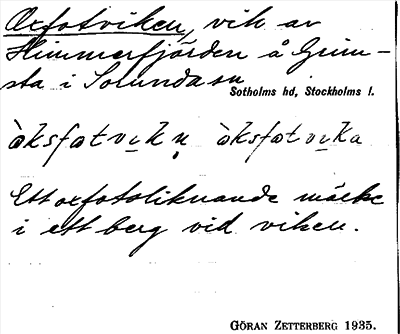 Oxfotviken, vik av
Himmerfjärden å Grim-
sta i Sorunda sn
Sotholms hd, Stockholms l.
òksfωtvịkn̥ òksfωtvịka
Ett oxfotsliknande märke
i ett berg vid viken.
GÖRAN ZETTERBERG 1935.